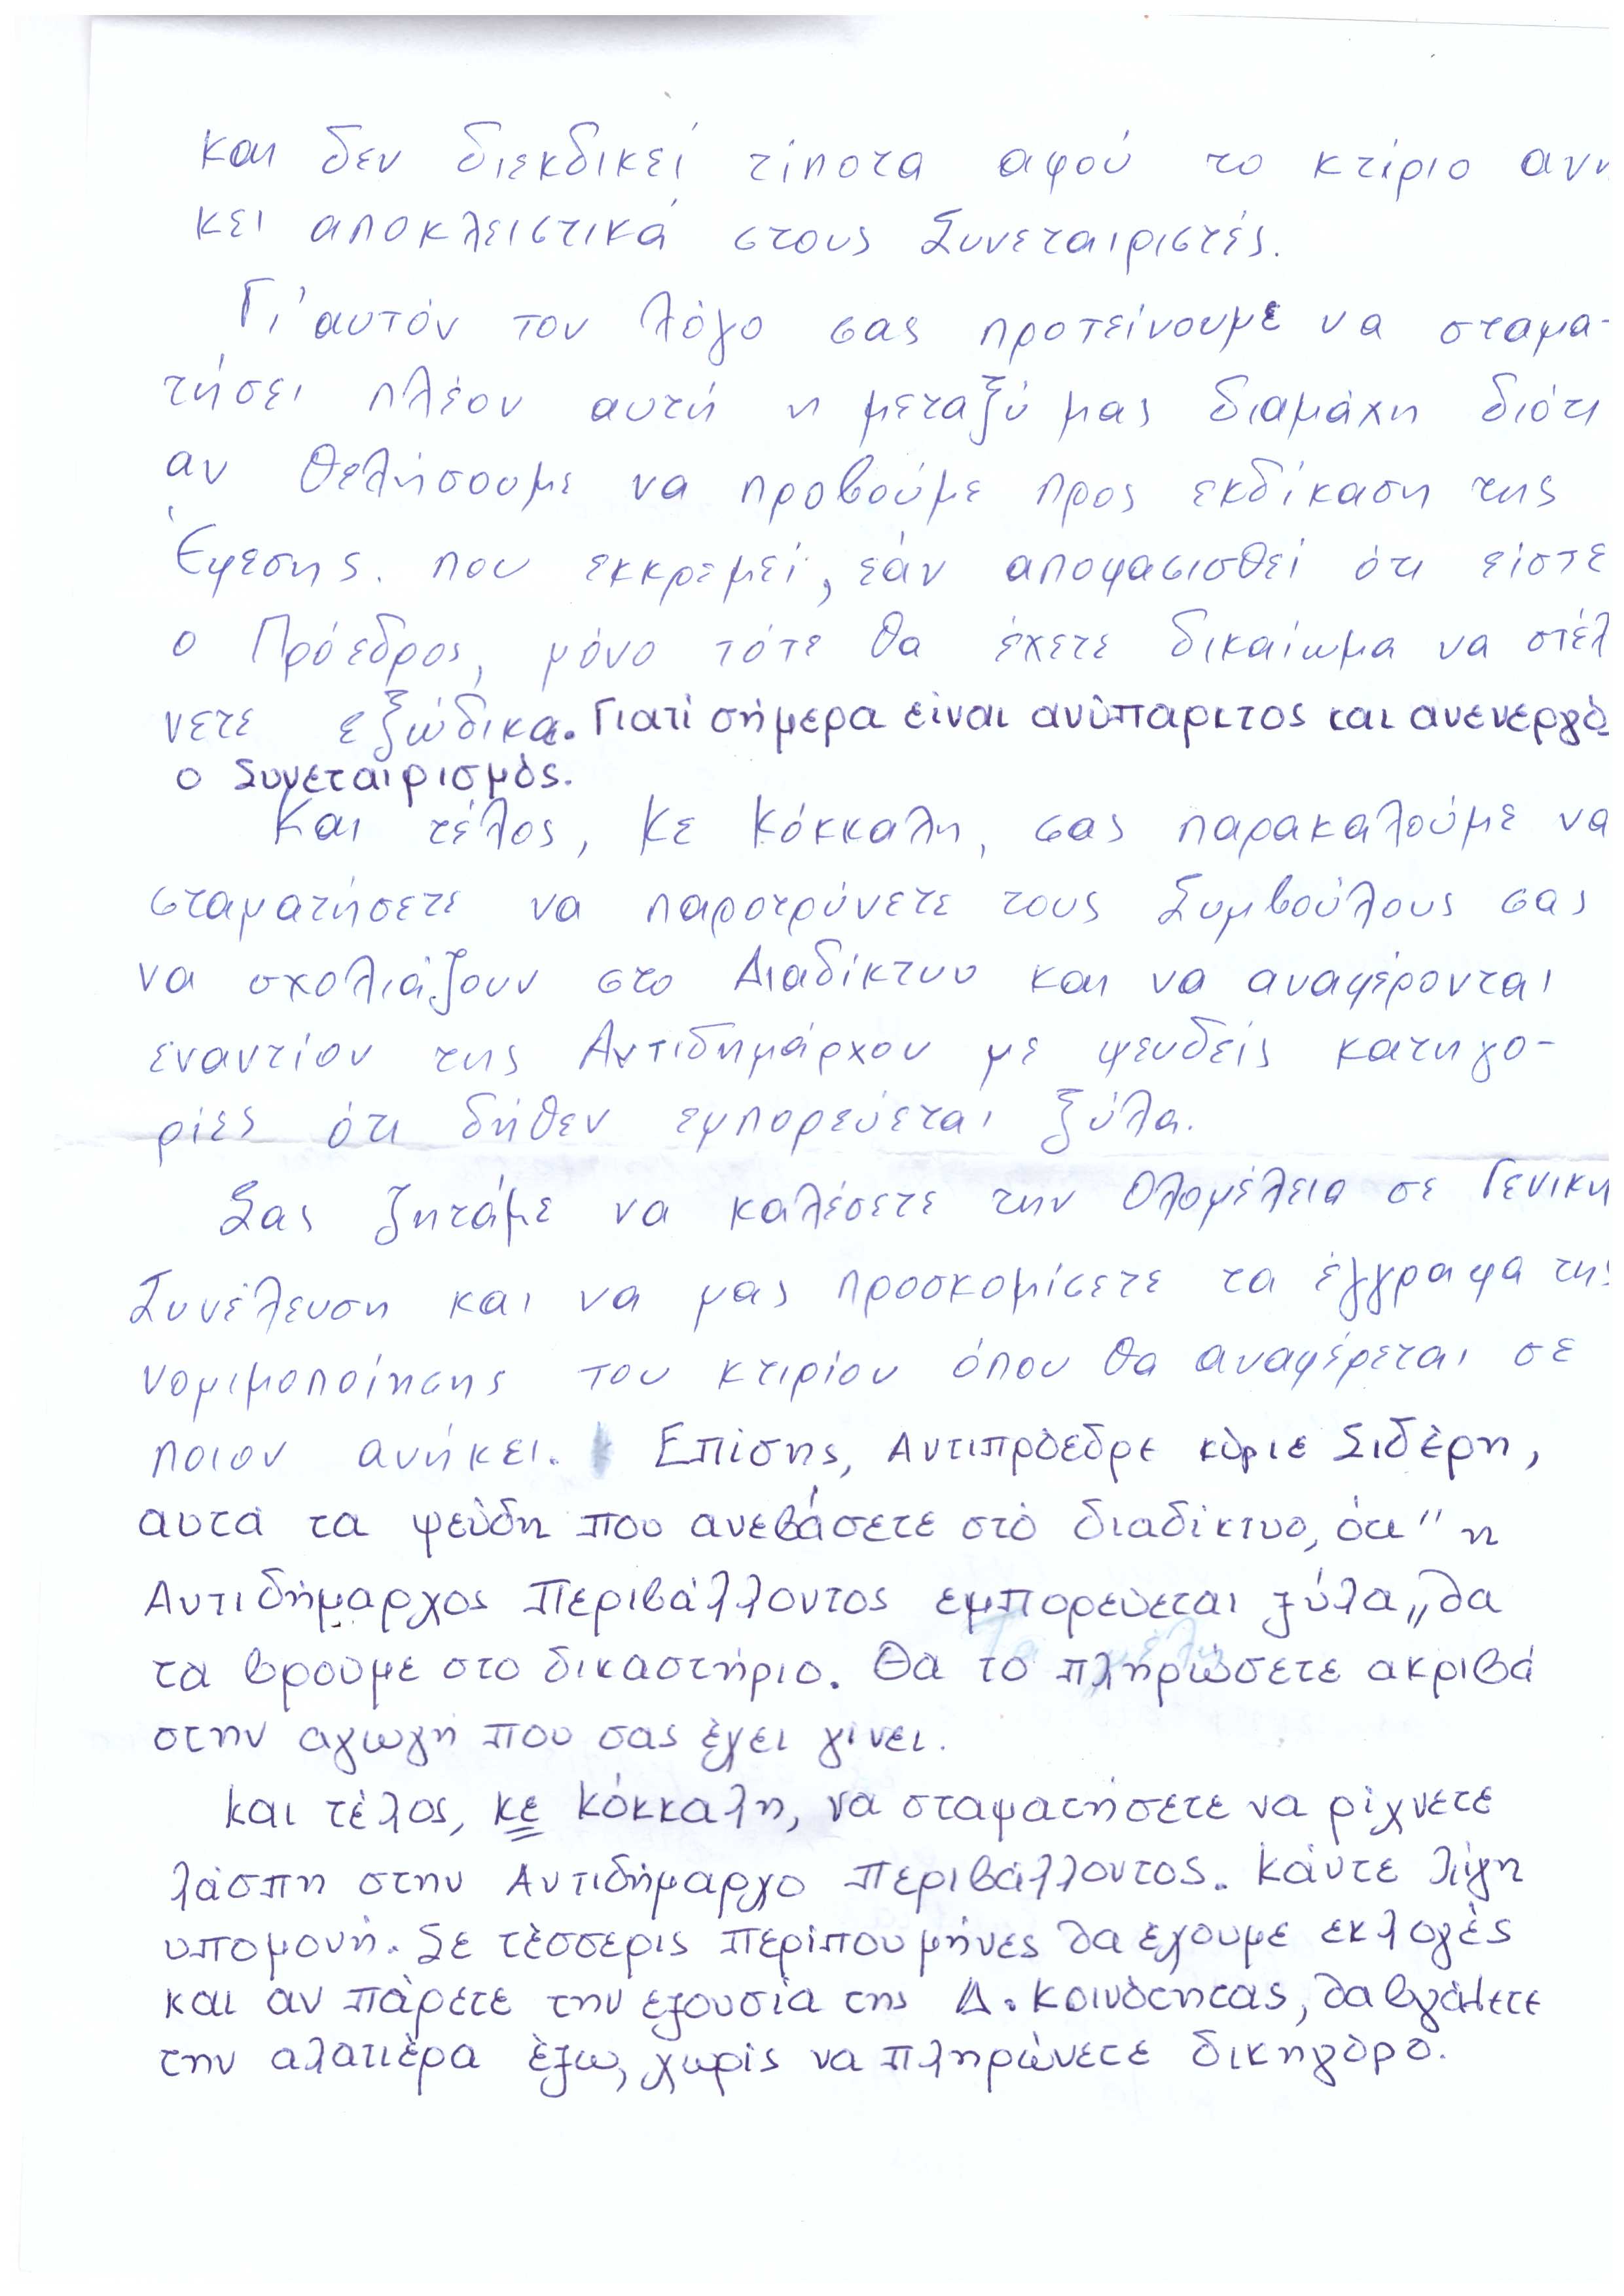 και δεν διεκδικεί τίποτα αφού το κτίριο ανή
κει αποκλειστικά στους Συνεταιριστές.
Γι'αυτόν τον λόγο σας προτείνουμε να σταμα-
τήσει πλέον αυτή η μεταξύ μας διαμάχη διότι
αν θελήσουμε να προβούμε προς εκδίκαση της
Έφεσης. που εκκρεμεί, εάν αποφασισθεί ότι είστε
ο Πρόεδρος, μόνο τότε θα έχετε δικαίωμα να στέλ
νετε εξώδικα. Γιατί σήμερα είναι ανύπαρκτος και ανενεργό
ο Συνεταιρισμός.
Και τέλος, Κε Κόκκαλη, σας παρακαλούμε να
σταματήσετε να παροτρύνετε τους Συμβούλους σας
να σχολιάζουν στο Διαδίκτυο και να αναφέρονται
εναντίον της Αντιδημάρχου με ψευδείς κατηγο-
ρίες ότι δήθεν εμπορεύεται ξύλα.
Σας ζητάμε να καλέσετε την Ολομέλεια σε Γενική
Συνέλευση και να μας προσκομίσετε τα έγγραφα της
νομιμοποίησης του κτιρίου όπου θα αναφέρεται σε
ποιον ανήκει. Επίσης, Αντιπρόεδρε κύριε Σιδέρη,
αυτά τα ψεύδη που ανεβάσετε στό διαδίκτυο, ότι " η
Αντιδήμαρχος Περιβάλλοντος εμπορεύεται ξύλα,, θα
τα βρούμε στο δικαστήριο. Θα το πληρώσετε ακριβά
στην αγωγή που σας έχει γίνει.
Και τέλος, κε Κόκκαλη, να σταματήσετε να ρίχνετε
λάσπη στην Αντιδήμαρχο Περιβάλλοντος. Κάντε λίγη
υπομονή. Σε τέσσερις περίπου μήνες θα έχουμε εκλογές
και αν πάρετε την εξουσία της Δ. Κοινότητας, θα βγάλετε
την αλατιέρα έξω, χωρίς να πληρώνετε δικηγόρο.